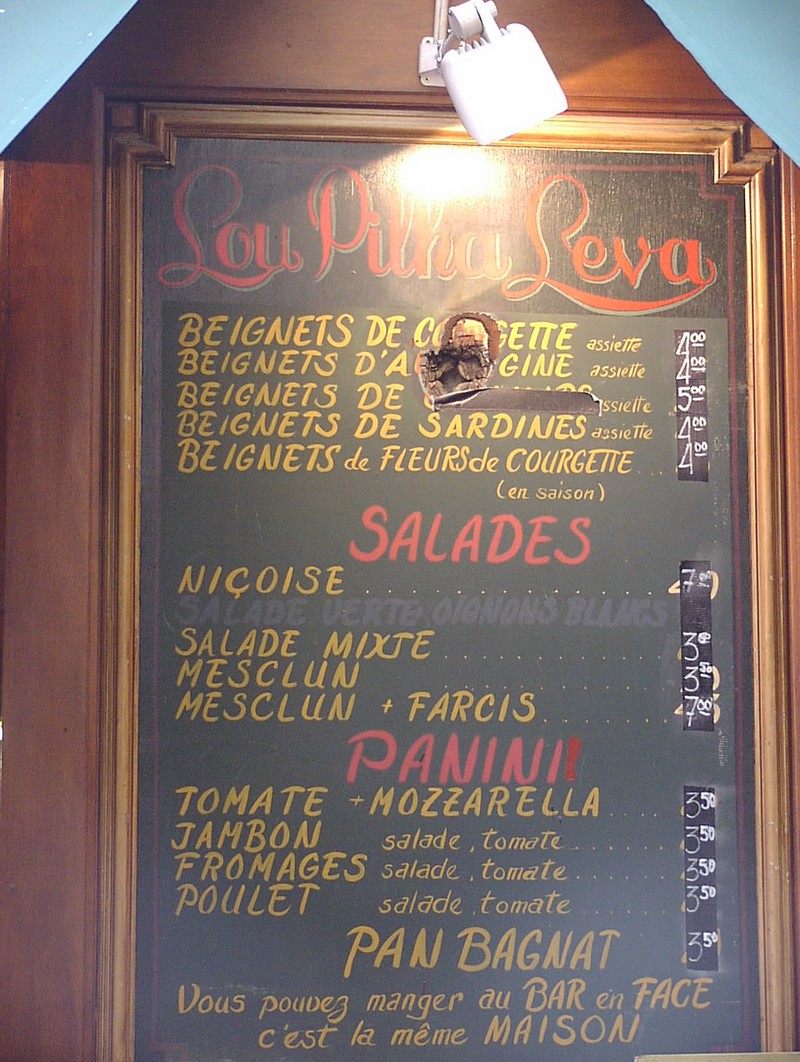 Lou Pilha Leva
BEIGNETS DE COURGETTE assiette 4.00
BEIGNETS D'AUBERGINE assiette 4.00
BEIGNETS DE assiette 5.00
BEIGNETS DE SARDINES assiette 4.00
BEIGNETS de FLEURS de COURGETTE .. 4.00
(en saison)
SALADES
NIÇOISE 7.00
SALADE VERTE OIGNONS BLANCS
SALADE MIXTE 3
MESCLUN 3.50
MESCLUN + FARCIS 7.00
PANINI
TOMATE + MOZZARELLA 3.50
JAMBON salade, tomate 3.50
FROMAGES salade, tomate 3.50
POULET salade, tomate 3.50
PAN BAGNAT 3.50
Vous pouvez manger au BAR en FACE
c'est la même MAISON